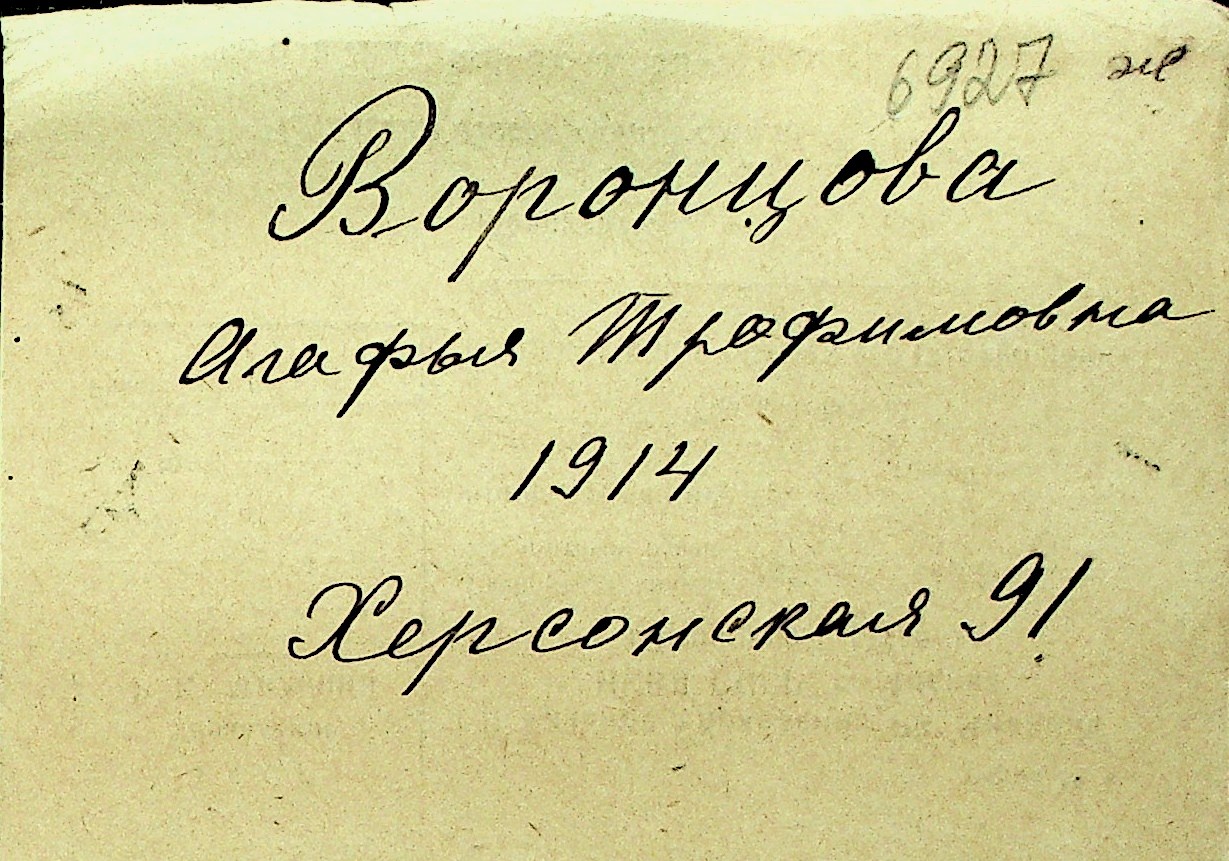 6927 же
Воронцова
Агафья Трофимовна
1914
Херсонская 91